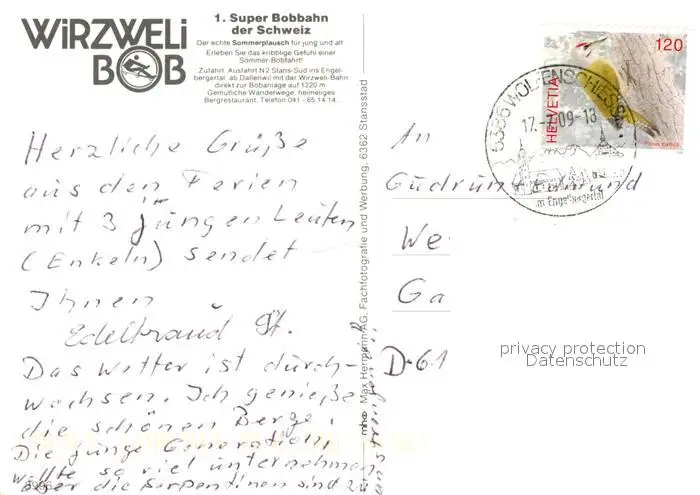 WiRZWELi
BOB
1. Super Bobbahn
der Schweiz
Der echte Sommerplausch für jung und alt
Erleben Sie das kribblige Gefühl einer
Sommer-Bobfahrt!
Zufahrt: Ausfahrt N2 Stans-Süd ins Engel-
bergertal, ab Dallenwil mit der Wirzweli-Bahn
direkt zur Bobanlage auf 1220 m.
Gemütliche Wanderwege, heimeliges
Bergrestaurant. Telefon 041 - 65 14 14.
Herzliche Grüße
aus den Ferien
mit 3 jungen Leuten
(Enkeln) sendet
Ihnen
Edeltraud St.
Das Wetter ist durch-
wachsen. Ich genieße
die schönen Berge.
Die junge Generation
wollte so viel unternehmen
aber die Serpentinen sind zu
anstrengend
Max Hermann AG, Fachfotografie und Werbung, 6362 Stansstad
120
HELVETIA
6386 WOLFENSCHIESSEN
17.-7.09-18
im Engelbergertal
An
Gudrun + Edmund
We
Ga
D-61
privacy protection
Datenschutz